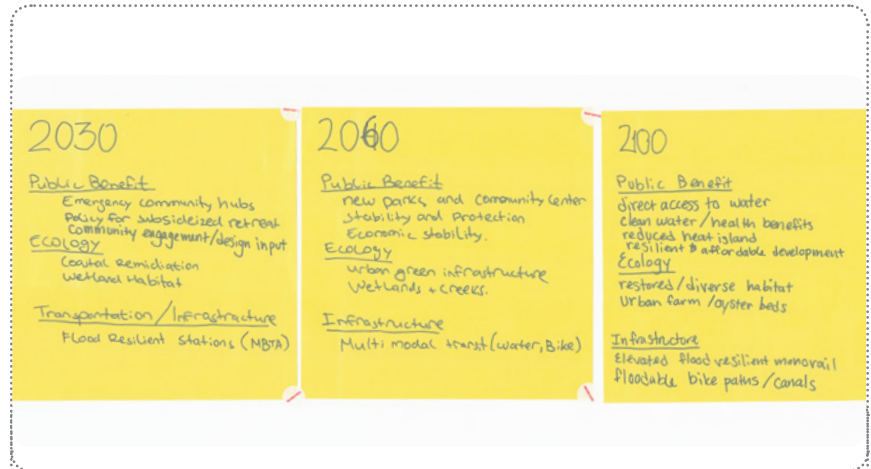 2030
Public Benefit
Emergency community hubs
Policy for subsideized retreat
Community engagement/design input
Ecology
Coastal Remidiation
Wetland Habitat
Transportation/Infrastracture
Flood Resilient Stations (MBTA)
2060
Public Benefit
new parks and community center
Stability and Protection
Economic stability.
Ecology
urban green infrastructure
Wetlands + creeks.
Infrastructure
Multi modal transit (water, Bike)
2100
Public Benefit
direct access to water
clean water/health benefits
reduced heat island
resilient & affordable development
Ecology
restored/diverse habitat
Urban farm/oyster beds
Infrastructure
Elevated flood resilient monorail
floodable bike paths/canals